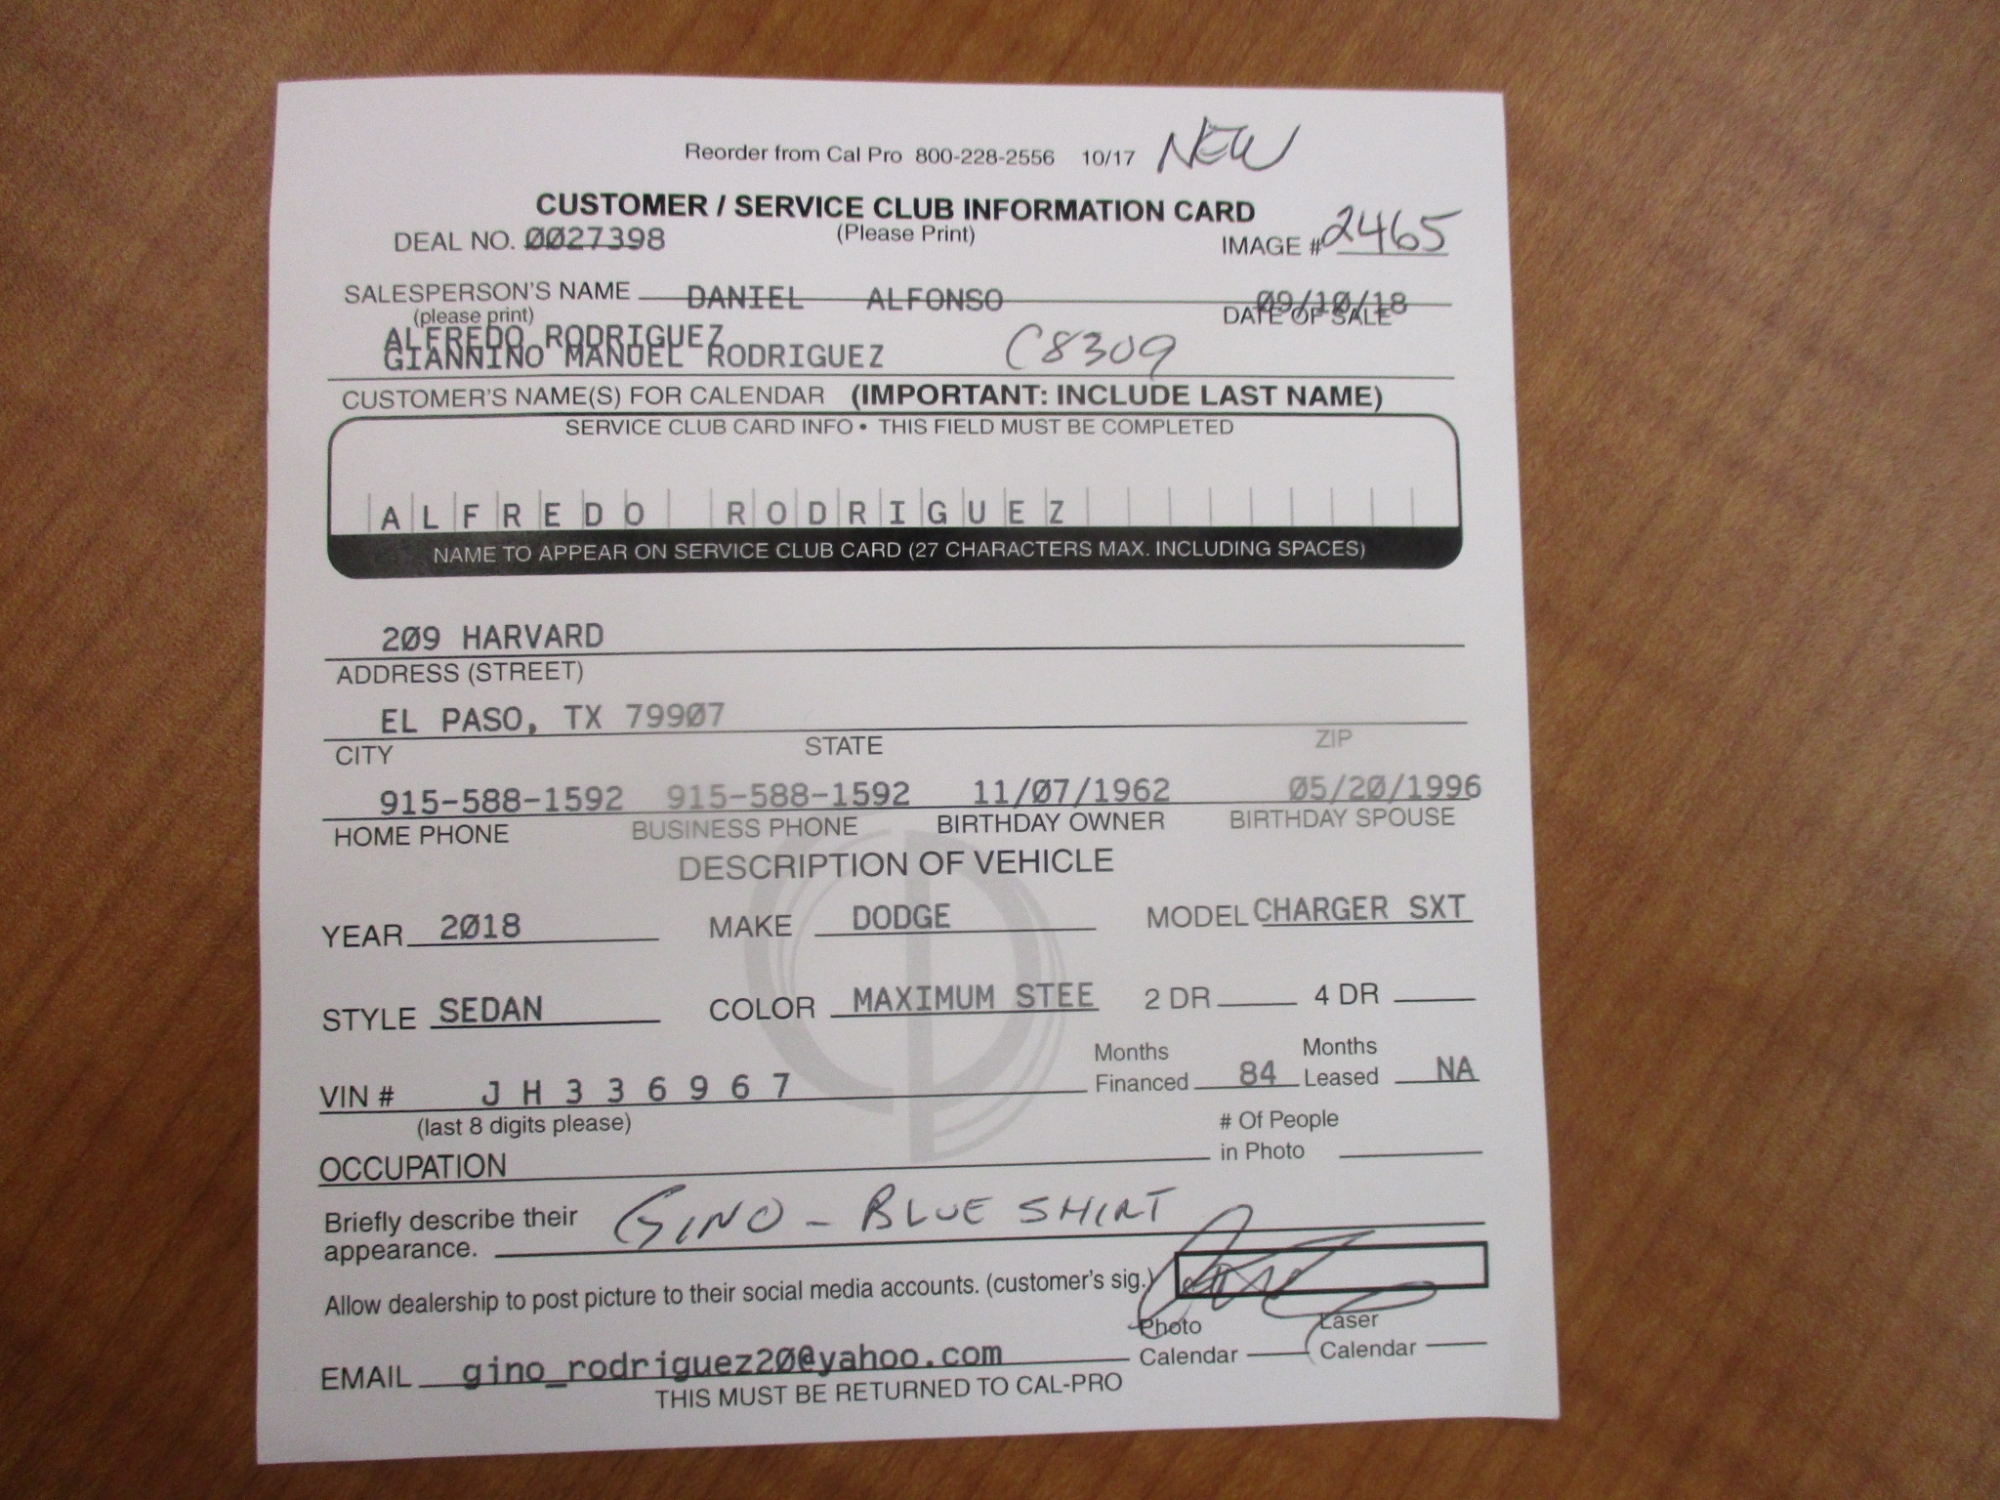 Reorder from Cal Pro 800-228-2556 10/17 NEW
CUSTOMER / SERVICE CLUB INFORMATION CARD
DEAL NO. 0027398 (Please Print) IMAGE # 2465
SALESPERSON'S NAME DANIEL ALFONSO 09/10/18
(please print) DATE OF SALE
ALFREDO RODRIGUEZ
GIANNINO MANUEL RODRIGUEZ C8309
CUSTOMER'S NAME(S) FOR CALENDAR (IMPORTANT: INCLUDE LAST NAME)
SERVICE CLUB CARD INFO • THIS FIELD MUST BE COMPLETED
ALFREDO RODRIGUEZ
NAME TO APPEAR ON SERVICE CLUB CARD (27 CHARACTERS MAX. INCLUDING SPACES)
209 HARVARD
ADDRESS (STREET)
EL PASO, TX 79907
CITY STATE ZIP
915-588-1592 915-588-1592 11/07/1962 05/20/1996
HOME PHONE BUSINESS PHONE BIRTHDAY OWNER BIRTHDAY SPOUSE
DESCRIPTION OF VEHICLE
YEAR 2018 MAKE DODGE MODEL CHARGER SXT
STYLE SEDAN COLOR MAXIMUM STEE 2 DR 4 DR
Months Months
VIN # JH336967 Financed 84 Leased NA
(last 8 digits please) # Of People
OCCUPATION in Photo
Briefly describe their GINO - BLUE SHIRT
appearance.
Allow dealership to post picture to their social media accounts. (customer's sig.)
Photo Laser
EMAIL gino_rodriguez20@yahoo.com Calendar Calendar
THIS MUST BE RETURNED TO CAL-PRO